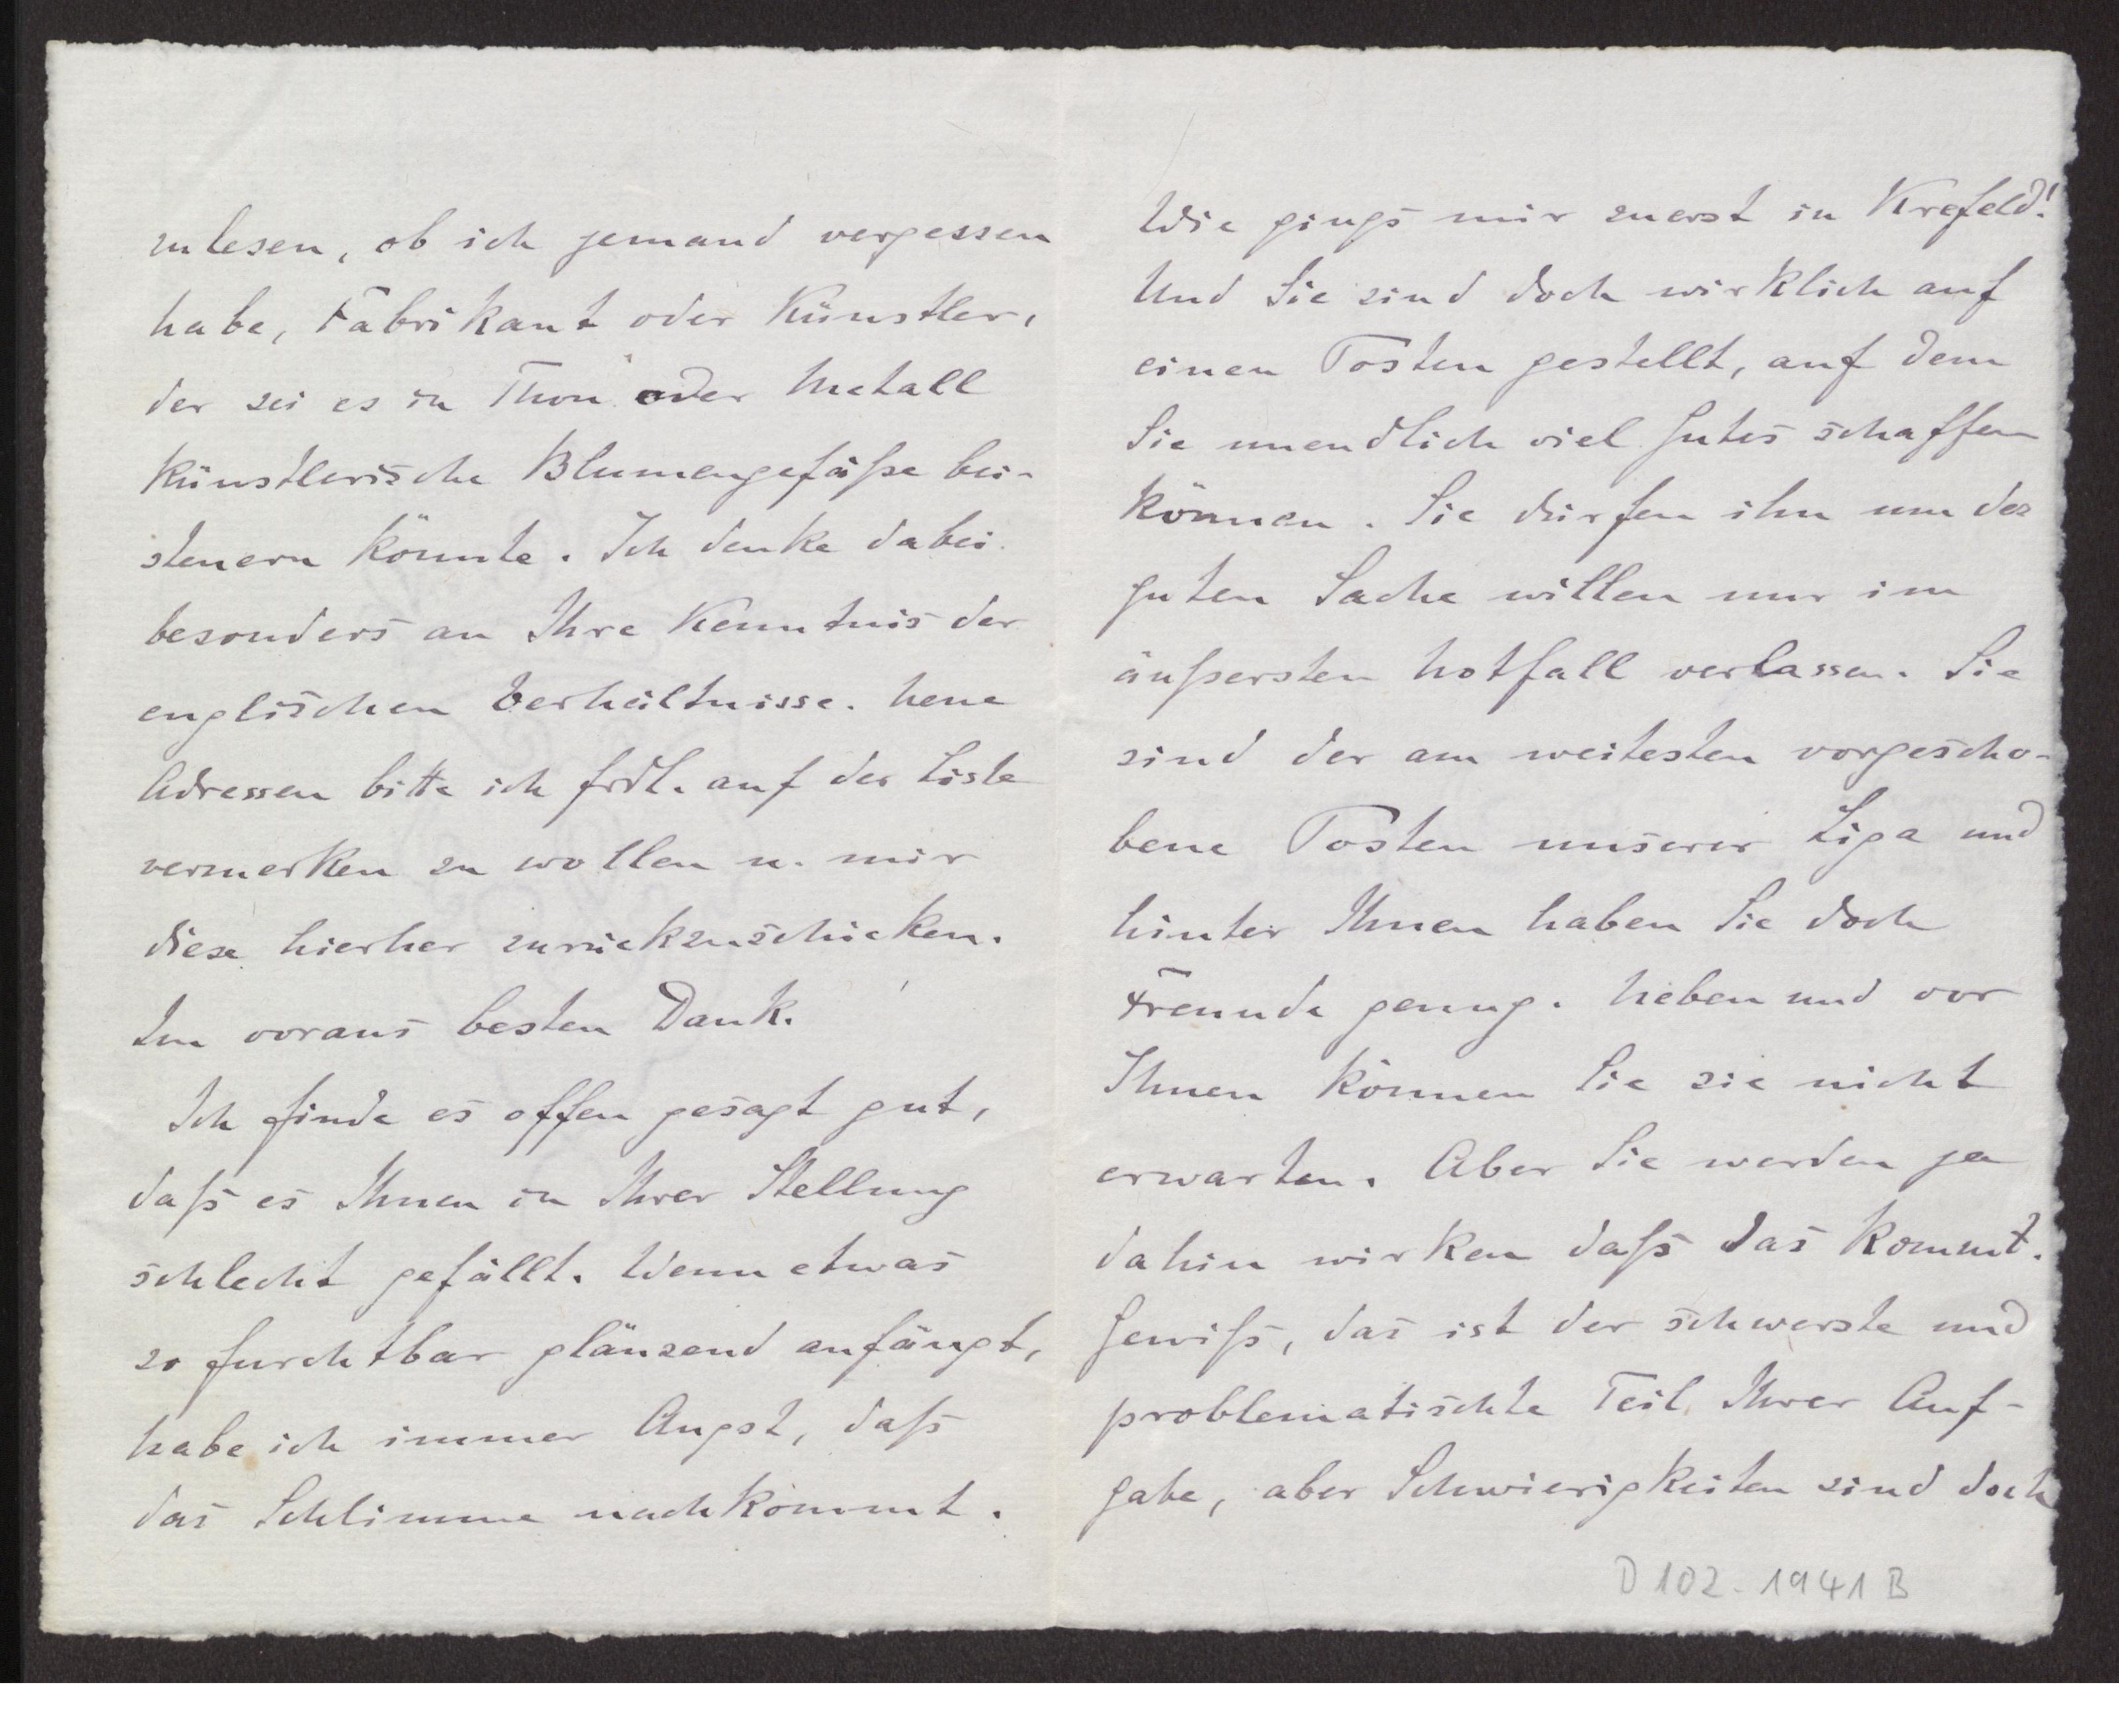 zulesen, ob ich jemand vergessen
habe, Fabrikant oder Künstler,
der sei es in Thon oder Metall
künstlerische Blumengefäße bei-
steuern könnte. Ich denke dabei
besonders an Ihre Kenntnis der
englischen Verhältnisse. Neue
Adressen bitte ich frdl. auf der Liste
vermerken zu wollen u. mir
diese hierher zurückzuschicken.
Im voraus besten Dank.
Ich finde es offen gesagt gut,
daß es Ihnen in Ihrer Stellung
schlecht gefällt. Wenn etwas
so furchtbar glänzend anfängt,
habe ich immer Angst, daß
das Schlimme nachkommt.
Wie gings mir zuerst in Krefeld!
Und Sie sind doch wirklich auf
einen Posten gestellt, auf dem
Sie unendlich viel Gutes schaffen
können. Sie dürfen ihn um der
guten Sache willen nur im
äußersten Notfall verlassen. Sie
sind der am weitesten vorgescho-
bene Posten unserer Liga und
hinter Ihnen haben Sie doch
Freunde genug. Neben und vor
Ihnen können Sie sie nicht
erwarten. Aber Sie werden ja
dahin wirken daß das kommt.
Gewiß, das ist der schwerste und
problematischte Teil Ihrer Auf-
gabe, aber Schwierigkeiten sind doch
D 102-1941 B